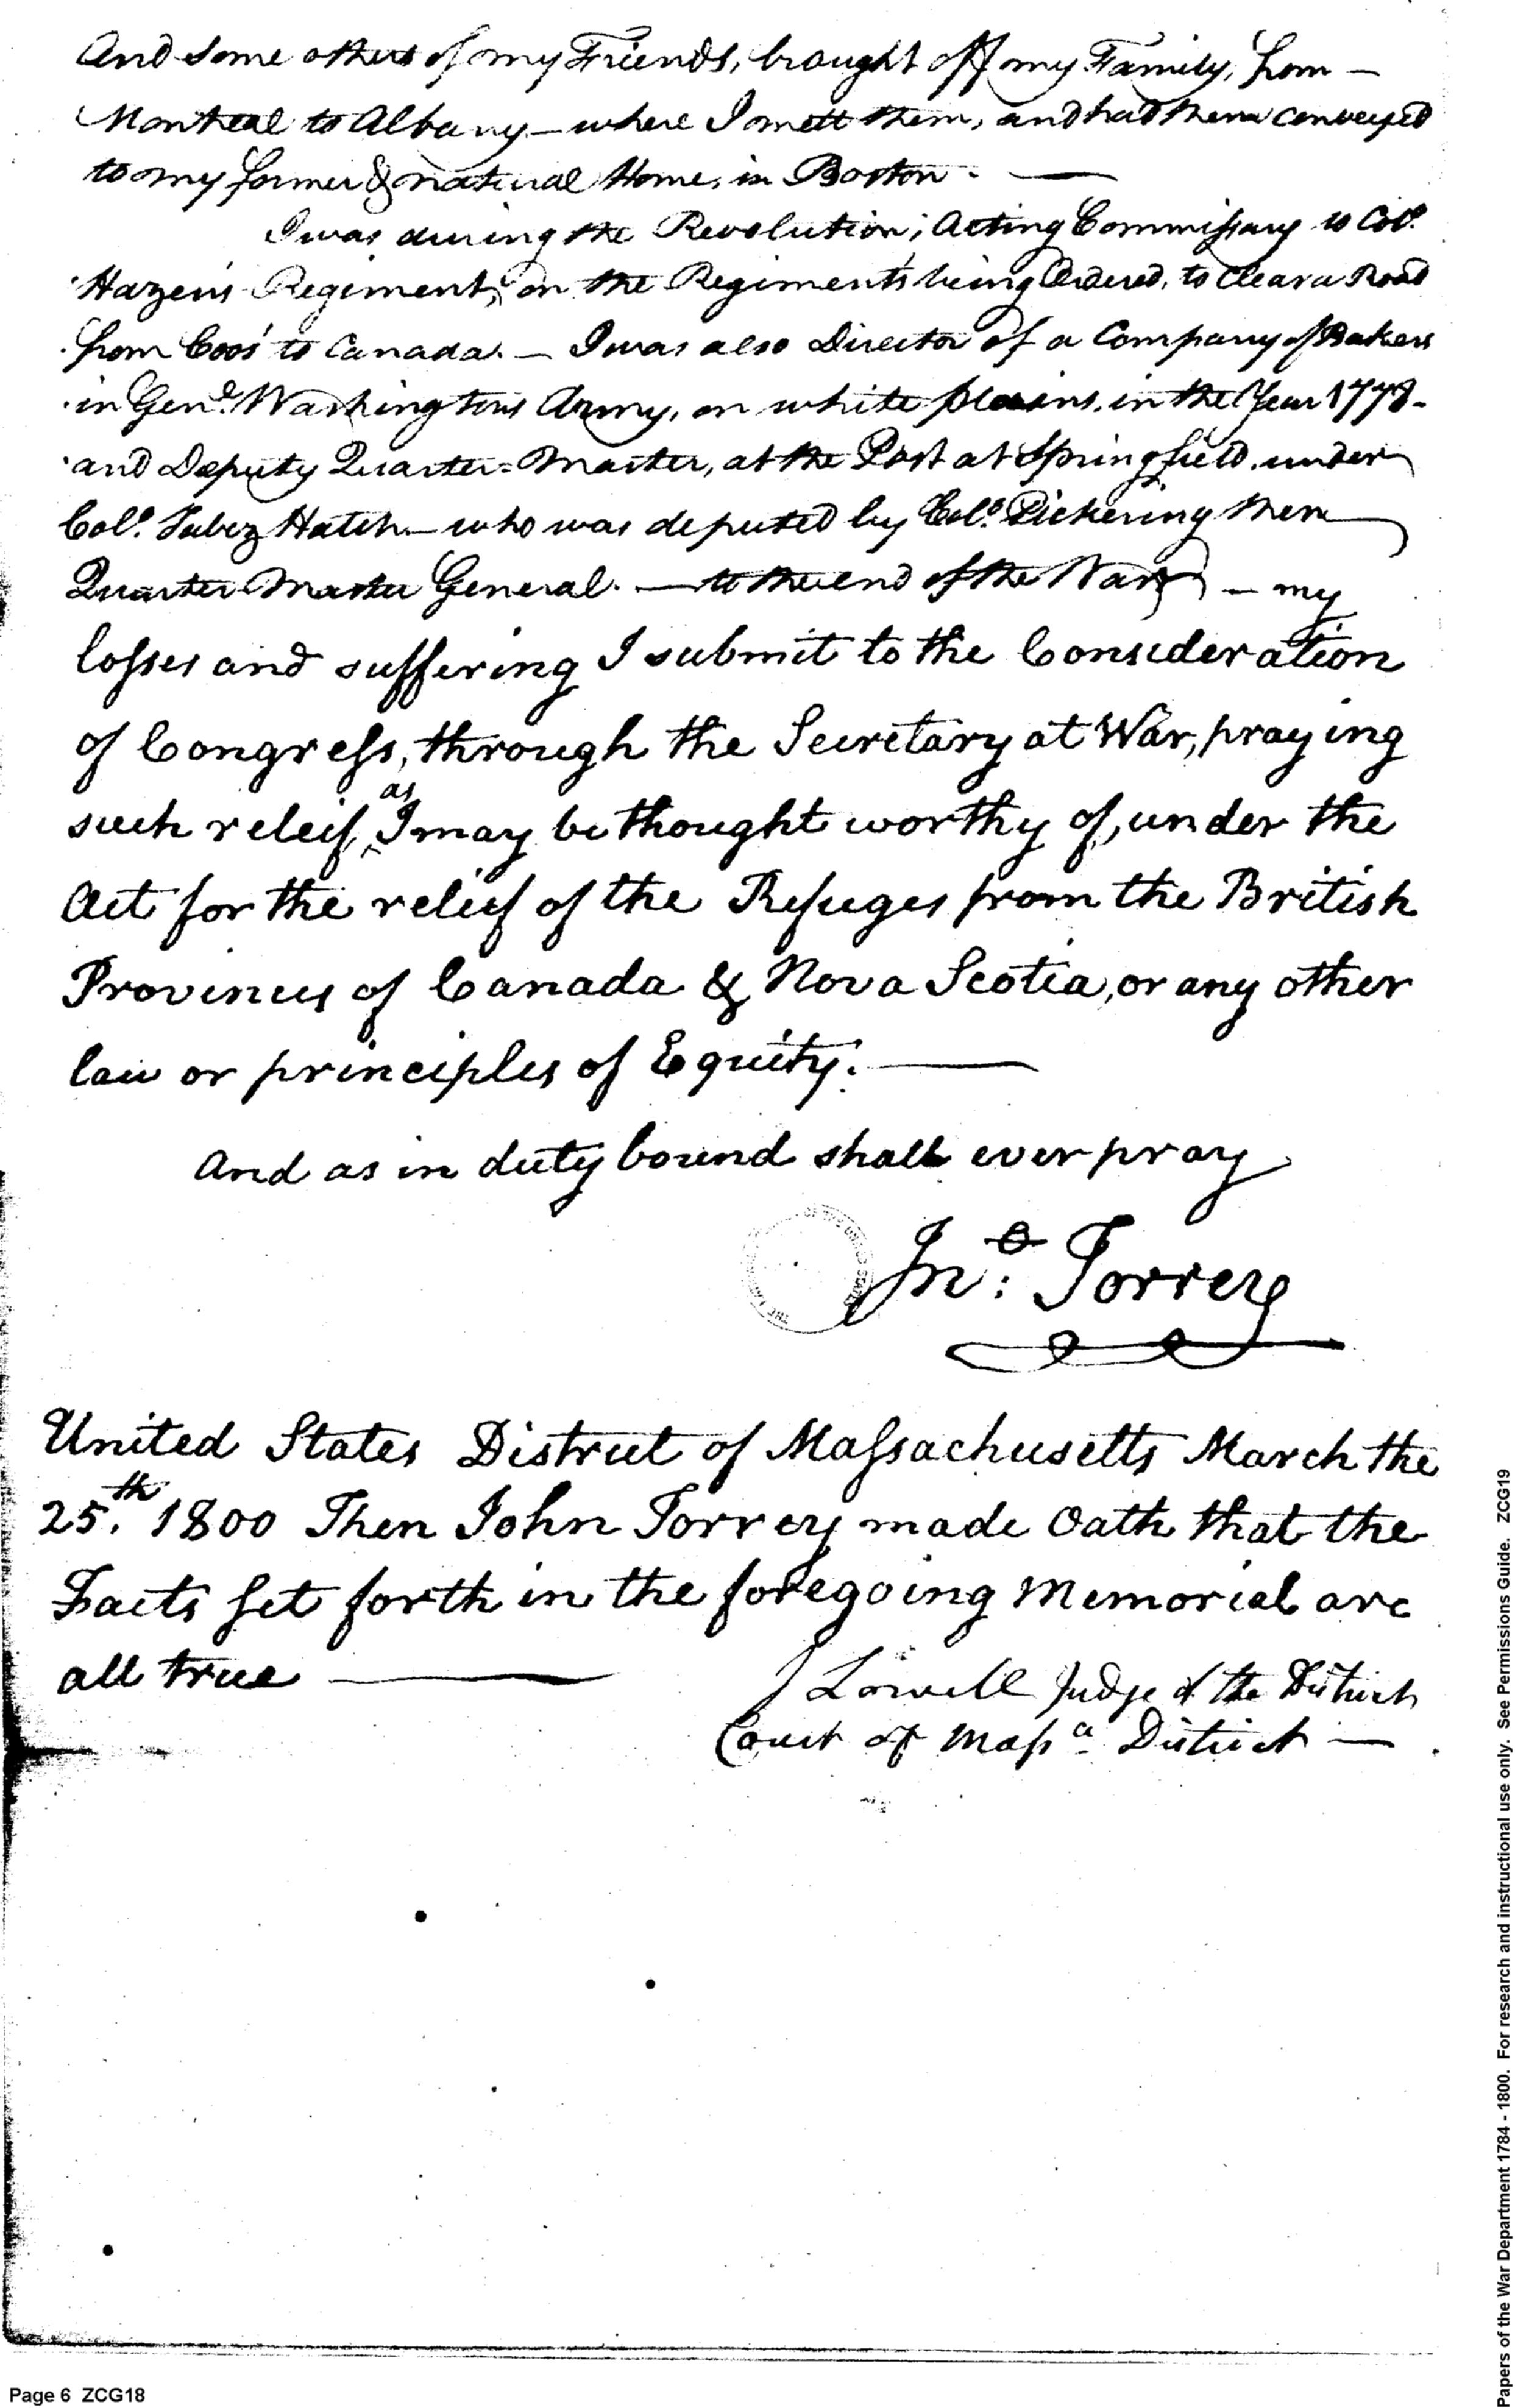 And some others of my Friends, brought off my Family, from —
Montreal to Albany — where I mett them, and had them conveyed
to my former & natural Home, in Boston. —
I was during the Revolution, Acting Commissary to Coll.
Hazen's Regiment, on the Regiments being Ordered, to Clear a Road
from Coos to Canada. — I was also Director of a Company of Bakers
in Genl. Washingtons Army, on white plains, in the Year 1778 -
and Deputy Quarter-Master, at the Post at Springfield, under
Colo. Jabez Hatch — who was deputed by Colo. Pickering then
Quarter Master General. — to the end of the War — my
losses and suffering I submit to the Consideration
of Congress, through the Secretary at War, praying
such releif, as I may be thought worthy of, under the
Act for the relief of the Refuges from the British
Provinces of Canada & Nova Scotia, or any other
law or principles of Equity: —
And as in duty bound shall ever pray
Jno: Torrey
United States District of Massachusetts March the
25.th 1800 Then John Torrey made Oath that the
Facts set forth in the foregoing Memorial are
all true —
J Lowell Judge of the District
Court of Massa District —
Page 6 ZCG18
Papers of the War Department 1784 - 1800. For research and instructional use only. See Permissions Guide. ZCG19